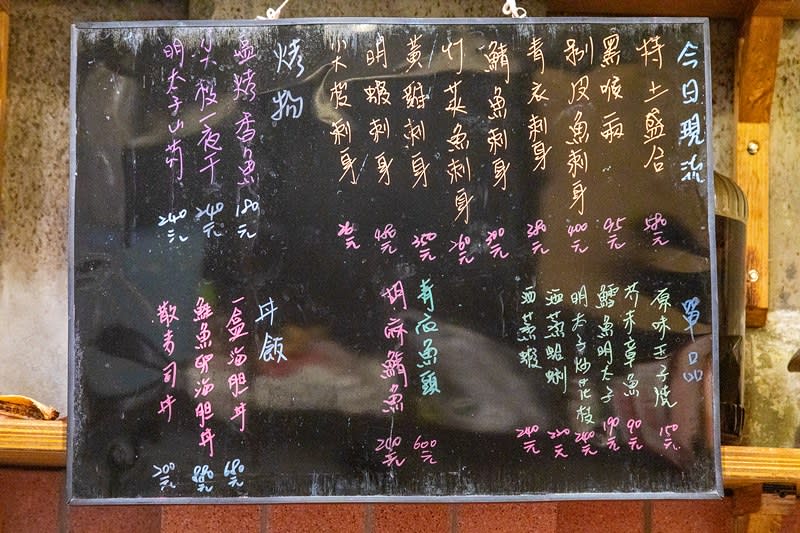 今日現流
特上盛合 580元
黑喉兩 95元
剝皮魚刺身 400元
青衣刺身 380元
鯖魚刺身 200元
竹筴魚刺身 260元
黃雞刺身 350元
明蝦刺身 480元
尖梭刺身
烤物
塩烤香魚 180元
尖梭一夜干 240元
明太子山藥 240元
單品
原味玉子燒 150元
芥末章魚 90元
鱈魚明太子 190元
明太子炒花枝 240元
酒蒸蛤蜊 220元
酒蒸蝦 240元
青衣魚頭 600元
胡麻鯖魚 200元
丼飯
一盒海胆丼 680元
鮭魚卵海胆丼 880元
散壽司丼 200元